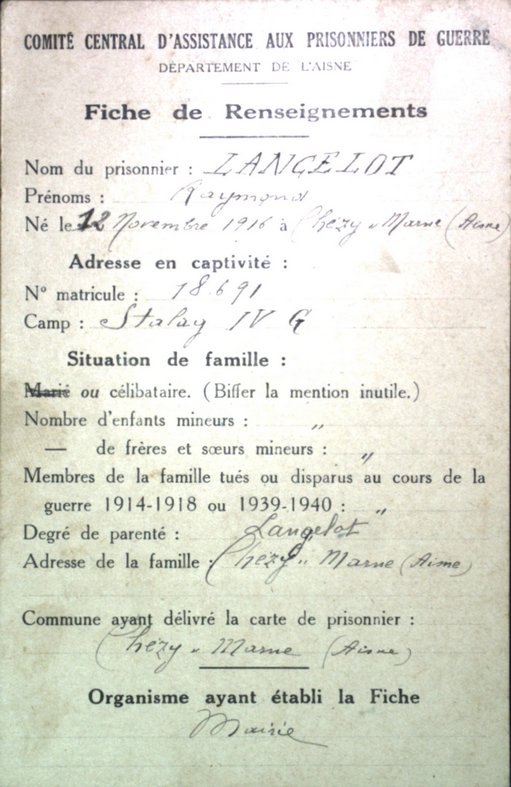 COMITÉ CENTRAL D'ASSISTANCE AUX PRISONNIERS DE GUERRE
DÉPARTEMENT DE L'AISNE
Fiche de Renseignements
Nom du prisonnier : LANGELOT
Prénoms : Raymond
Né le 12 Novembre 1916 à Chézy s/ Marne (Aisne)
Adresse en captivité :
N° matricule : 18.691
Camp : Stalag IV G
Situation de famille :
Marié ou célibataire. (Biffer la mention inutile.)
Nombre d'enfants mineurs : "
— de frères et sœurs mineurs : "
Membres de la famille tués ou disparus au cours de la
guerre 1914-1918 ou 1939-1940 : "
Degré de parenté : Langelot
Adresse de la famille : Chézy s/ Marne (Aisne)
Commune ayant délivré la carte de prisonnier :
Chézy s/ Marne (Aisne)
Organisme ayant établi la Fiche
Mairie